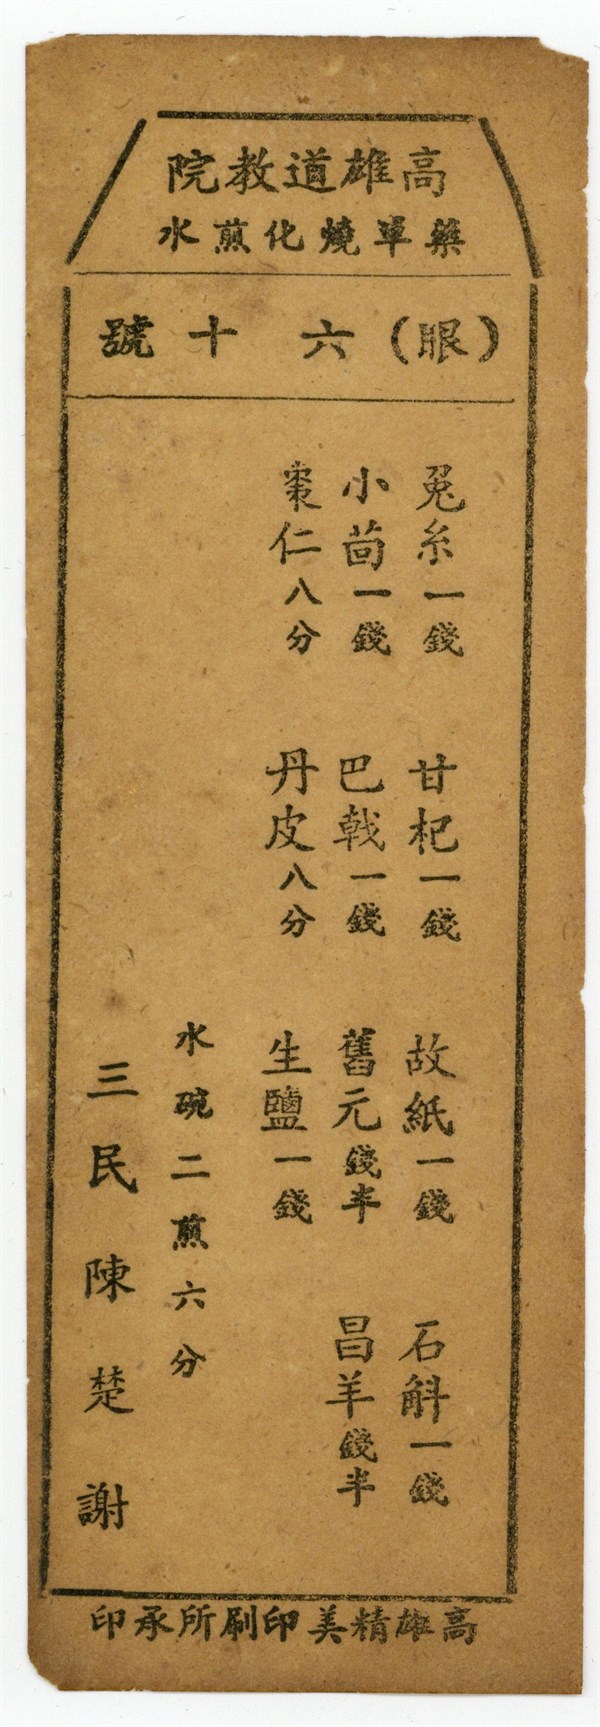 高雄道教院
藥單燒化煎水
(眼)六十號
兎糸一錢 甘杞一錢 故紙一錢 石斛一錢
小茴一錢 巴戟一錢 舊元錢半 昌羊錢半
棗仁八分 丹皮八分 生鹽一錢
水碗二煎六分
三民陳楚謝
高雄精美印刷所承印